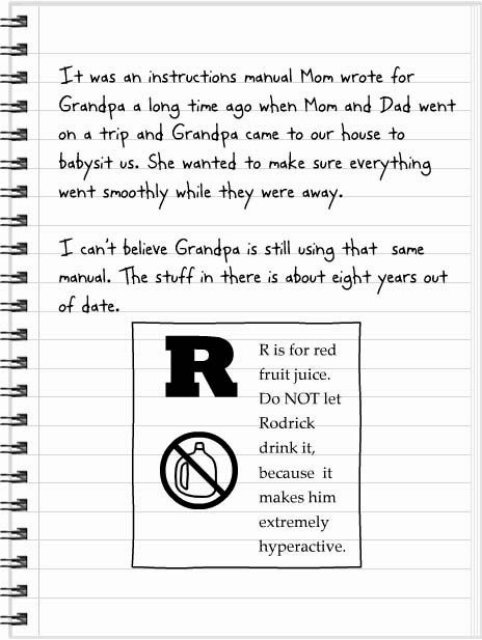 It was an instructions manual Mom wrote for
Grandpa a long time ago when Mom and Dad went
on a trip and Grandpa came to our house to
babysit us. She wanted to make sure everything
went smoothly while they were away.
I can't believe Grandpa is still using that same
manual. The stuff in there is about eight years out
of date.
R
R is for red
fruit juice.
Do NOT let
Rodrick
drink it,
because it
makes him
extremely
hyperactive.